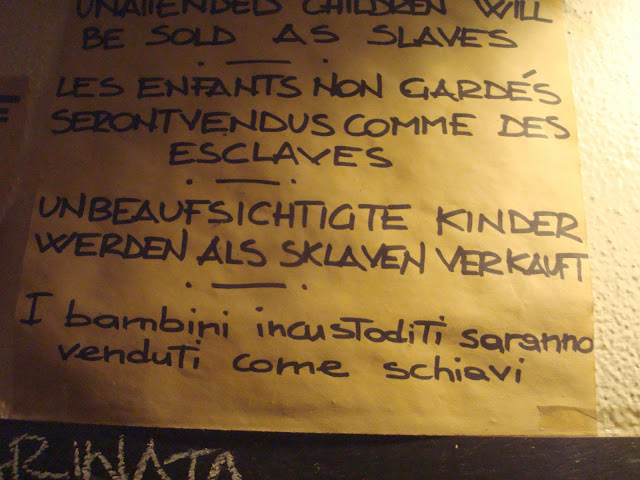 UNATTENDED CHILDREN WILL
BE SOLD AS SLAVES
LES ENFANTS NON GARDÉS
SERONT VENDUS COMME DES
ESCLAVES
UNBEAUFSICHTIGTE KINDER
WERDEN ALS SKLAVEN VERKAUFT
I bambini incustoditi saranno
venduti come schiavi
RINATA